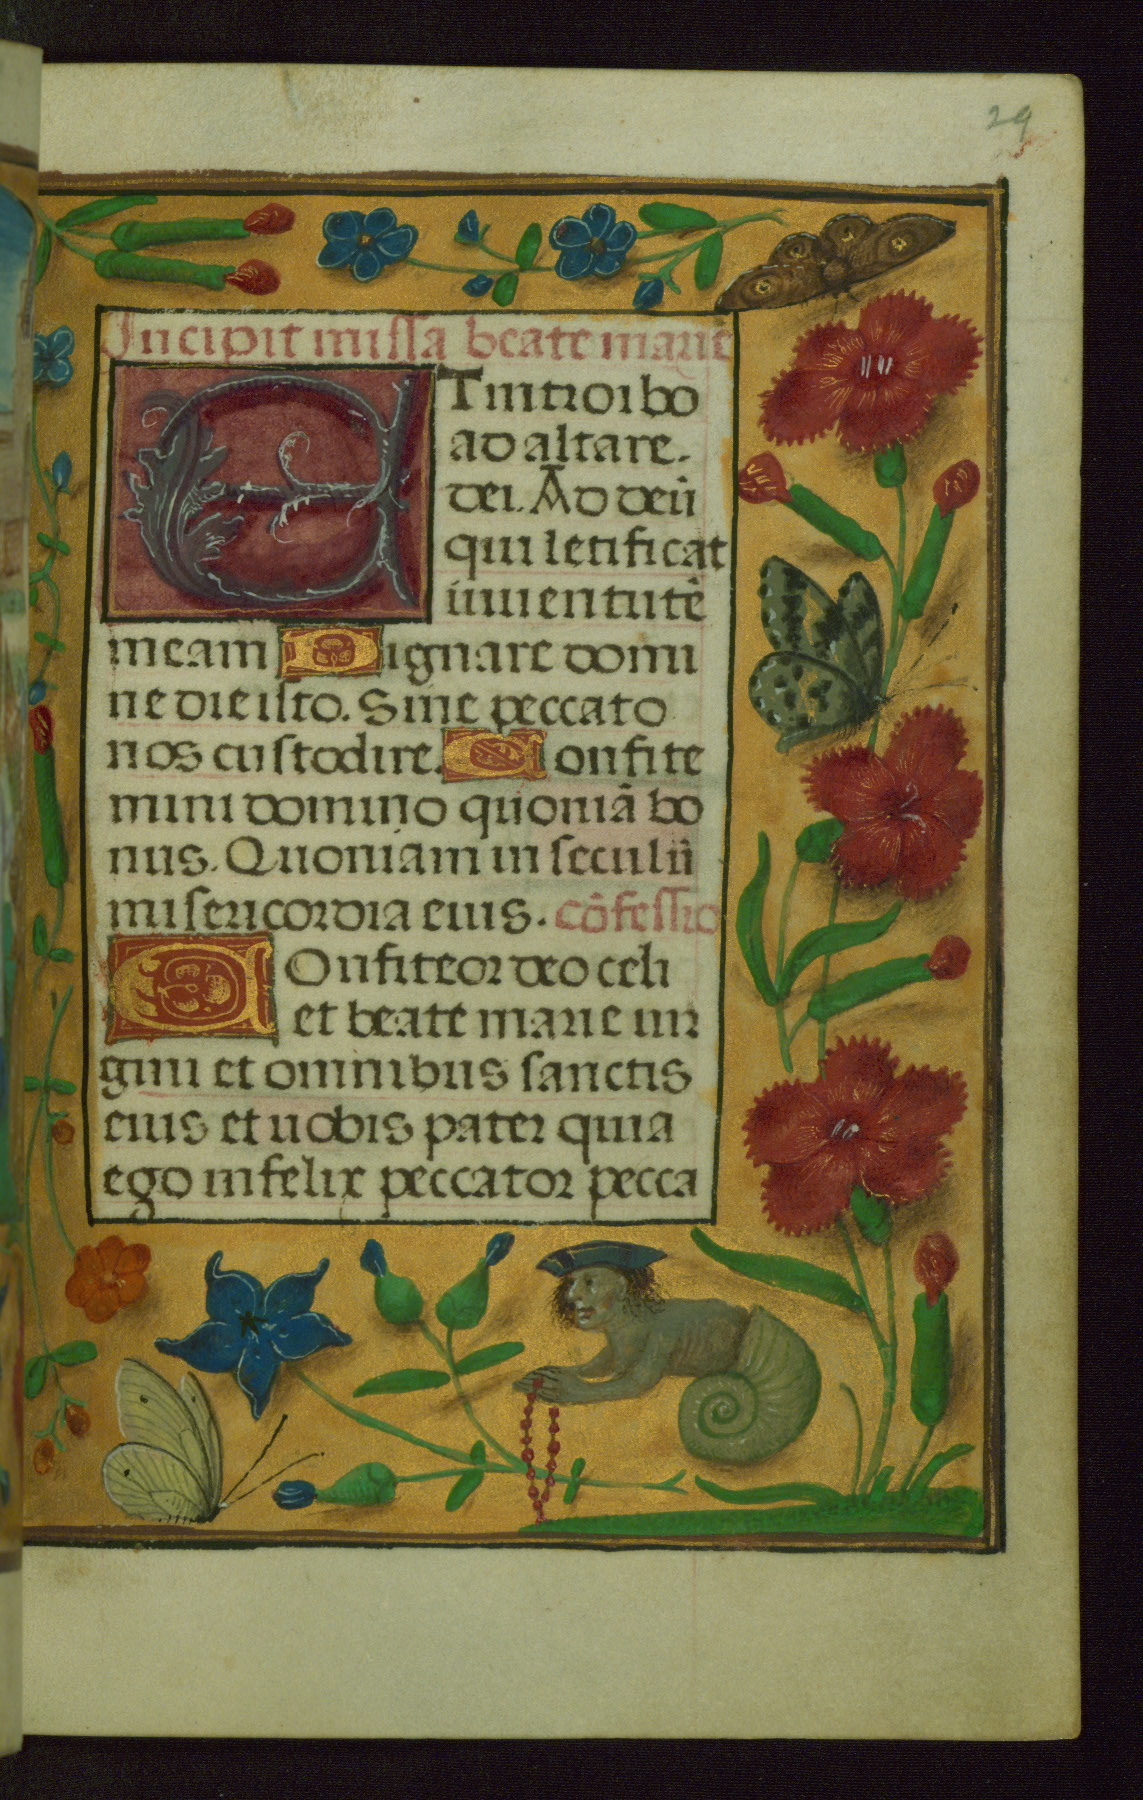 29
Incipit missa beate marie
ET introibo
ad altare.
dei. Ad deū
qui letificat
iuuentutē
meam Dignare domi
ne die isto. Sine peccato
nos custodire. Confite
mini domino quoniā bo
nus. Quoniam in seculū
misericordia eius. cōfessio
COnfiteor deo celi
et beate marie uir
gini et omnibus sanctis
eius et uobis pater quia
ego infelix peccator pecca